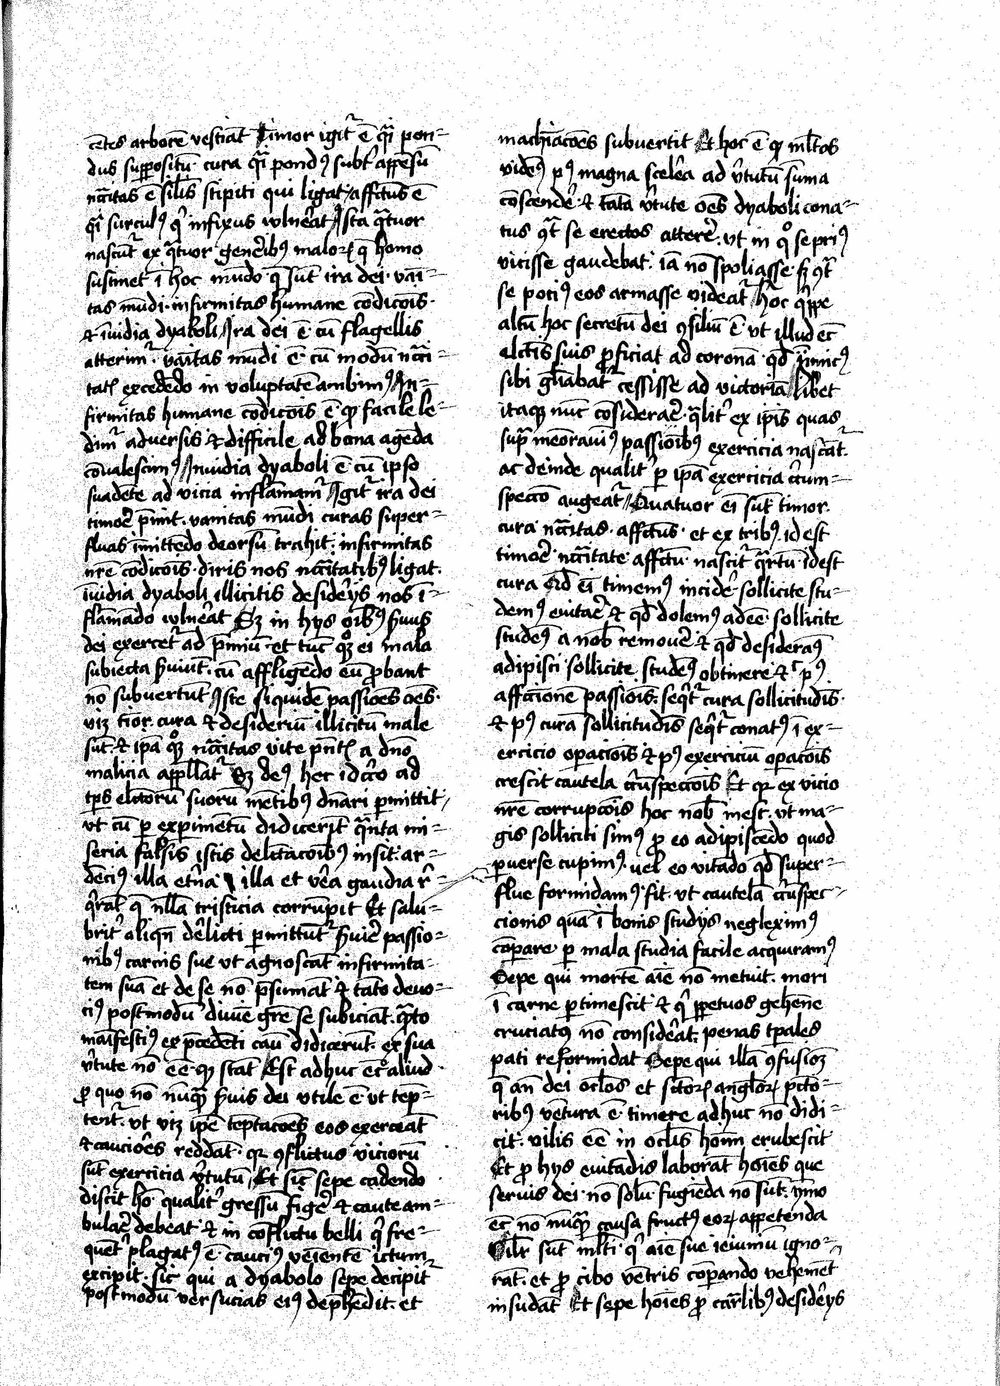 cētes arborē vestiāt Timor igit᷑ ē q̄i pon-
dus suppositū· cura q̄i pond⁹ subt᷑ appēsū
nc̄itas ē sil̄is stipiti qui ligat· affc̄tus ē
q̄i surcul⁹ q᷑ infixus vulnēat Ista q̄tuor
nascūt᷑ ex q̄tuor genēib⁹ maloꝝ q̄ homo
sustinet ī hoc mūdo q̄ sūt ira dei· vāi-
tas mūdi· infirmitas humane cōdicōis·
⁊ īuidia dyaboli Ira dei ē cū flagellis
atterim᷑· vāitas mūdi ē· cū modū nc̄i-
tatꝭ excedēdo in voluptatē ambim⁹ In-
firmitas humane cōdicōis ē q̄ facile le-
dim᷑ aduersis ⁊ difficile ad bona agēda
cōualescim⁹ Inuidia dyaboli ē cū ip̄o
suadēte ad vicia inflāmam᷑ Igit᷑ ira dei
timorē p̄mit· vanitas mūdi curas super-
fluas īmittēdo deorsū trahit· infirmitas
nr̄e cōdicōis diris nos nc̄itatib⁹ ligat·
īuidia dyaboli illicitis desidēijs nos ī-
flāmādo vulnēat Sꝫ in hijs oīb⁹ s̄uus
dei exercet᷑ ad p̄miū· et tūc qn̄ ei mala
subiecta s̄uiūt· cū affligēdo eū ꝓbant
nō subuertūt Iste siquidē passiōes oēs·
vꝫ tior· cura ⁊ desideriū illicitū male
sūt· ⁊ ip̄a qꝫ nc̄itas vite p̄ntꝭ a dn̄o
malicia appellat᷑ Sꝫ de⁹ hec idcīco ad
tp̄s elc̄torū suorū mētib⁹ dn̄ari ꝑmittit
vt cū ꝑ expimētū didicerīt q̄nta mi-
seria falsis istis delc̄tacōib⁹ insit· ar-
dēci⁹ illa etn̄a illa et vēa gaudia r᷑-
q̄rāt q̄ nlla tristicia corrūpit Et salu-
brit᷑ aliqn̄ dēlicti ꝑmittūt᷑ s̄uire passio-
nib⁹ carnis sue vt agnoscāt infirmita-
tem suā et de se nō p̄sumāt ⁊ tāto deuo-
ci⁹ postmodū diuīe gr̄e se subiciāt· q̄to
manifesti⁹ ex p̄cedēti cāu didicerūt· ex sua
v᷑tute nō eē· qꝫ stāt Est adhuc ec̄ aliud
ꝓ quo nō nūq̄ s̄uis dei vtile ē vt tēp-
tent᷑· vt vꝫ ip̄e tēptacōes eos exerceāt
⁊ cauciōes reddāt· qꝛ ꝯflictus viciorū
sūt exercicia v᷑tutū Et sic sepe cadendo
discit hō qualit᷑ gressū fige᷑ ⁊ caute am-
bulare debeat· ⁊ in cōflictu belli q᷑ fre-
quēt᷑ plagat⁹ ē cauci⁹ veīente ictum
excipit· sic qui a dyabolo sepe decipit᷑
postmodū versucias ei⁹ depn̄hedit· et
machīacōes subuertit Et hoc ē q̄ ml̄tos
videm⁹ p⁹ magna scelēa ad v᷑tutū sūma
cōscendē· ⁊ tāta v᷑tute oēs dyaboli cona-
tus q̄t se erectos atterē᷑· vt in qͦ se pri⁹
vicisse gaudebat· iā nō spoliasse· sꝫ q̄t
se poti⁹ eos armasse videat᷑ h᷑oc q̄ppe
altū hoc secretū dei ꝯsiliū ē· vt illud ec̄
elc̄is suis ꝓficiat ad coronā qd̄ inimic⁹
sibi gl̄iabat᷑ cessisse ad victoriā libet
itaqꝫ nūc cōsiderare· q̄lit᷑ ex ip̄is quas
sup̄ meōrauim⁹ passiōib⁹ exercicia nascāt᷑
ac deinde qualit᷑ ꝑ ip̄a exercicia cīcum-
spectō augeat᷑ Quatuor ei sūt timor·
cura nc̄itas· affc̄tus· et ex trib⁹· id est
timore· nc̄itate· affc̄tu· nascit᷑ q̄rtū· id est
cura Qd̄ ei timem⁹ incidē᷑ sollicite stu-
dem⁹ euitare ⁊ qd̄ dolem⁹ adeē sollicite
studem⁹ a nob̄ remouē ⁊ qd̄ desideram⁹
adipisci sollicite studem⁹ obtinere ⁊ c̄ p⁹·
affc̄cione passiois· seq̄t᷑ cura sollicitudīs·
⁊ p⁹ cura sollicitudīs seq̄t᷑ conat⁹ ī ex-
ercicio opacōis ⁊ p⁹ exerciciū opacōis
crescit cautela cīcūspectōis Et qꝛ ex vicio
nr̄e corrupcōis hoc nob̄ inest· vt ma-
gis solliciti sim⁹ ꝓ eo adipiscēdo quod
ꝑuerse cupim⁹· vel eo vitādo qd̄ super-
flue formidam⁹ fit· vt cautelā cīcūspec-
cionis quā ī bonis studijs neglexim⁹
cōpare· ꝑ mala studia facile acquiram⁹
Sepe qui mortē aīe nō metuit· mori
ī carne ꝑtimescit ⁊ q᷑ ꝑpetuos gehēne
cruciatꝰ nō considēat· penas tp̄ales
pati reformidat Sepe qui illā ꝯfusionē
q̄ an̄ dei oclos et sc̄toꝝ angloꝝ pc̄to-
ribus vētura ē timere adhuc nō didi-
cit· vilis eē in oclis hoīm erubescit
Et ꝓ hijs euitādis laborāt hoīes que
seruis dei nō solū fugiēda nō sūt· ymo
ec̄ nō nūq̄ causa fruct⁹ eoꝝ appetenda
Silr̄ sūt ml̄ti q᷑ aīe sue ieiuniū igno-
rāt· et ꝓ cibo vētris cōparādo vehemēt᷑
insudāt Et sepe hoīes ꝓ carlib⁹ desidēijs